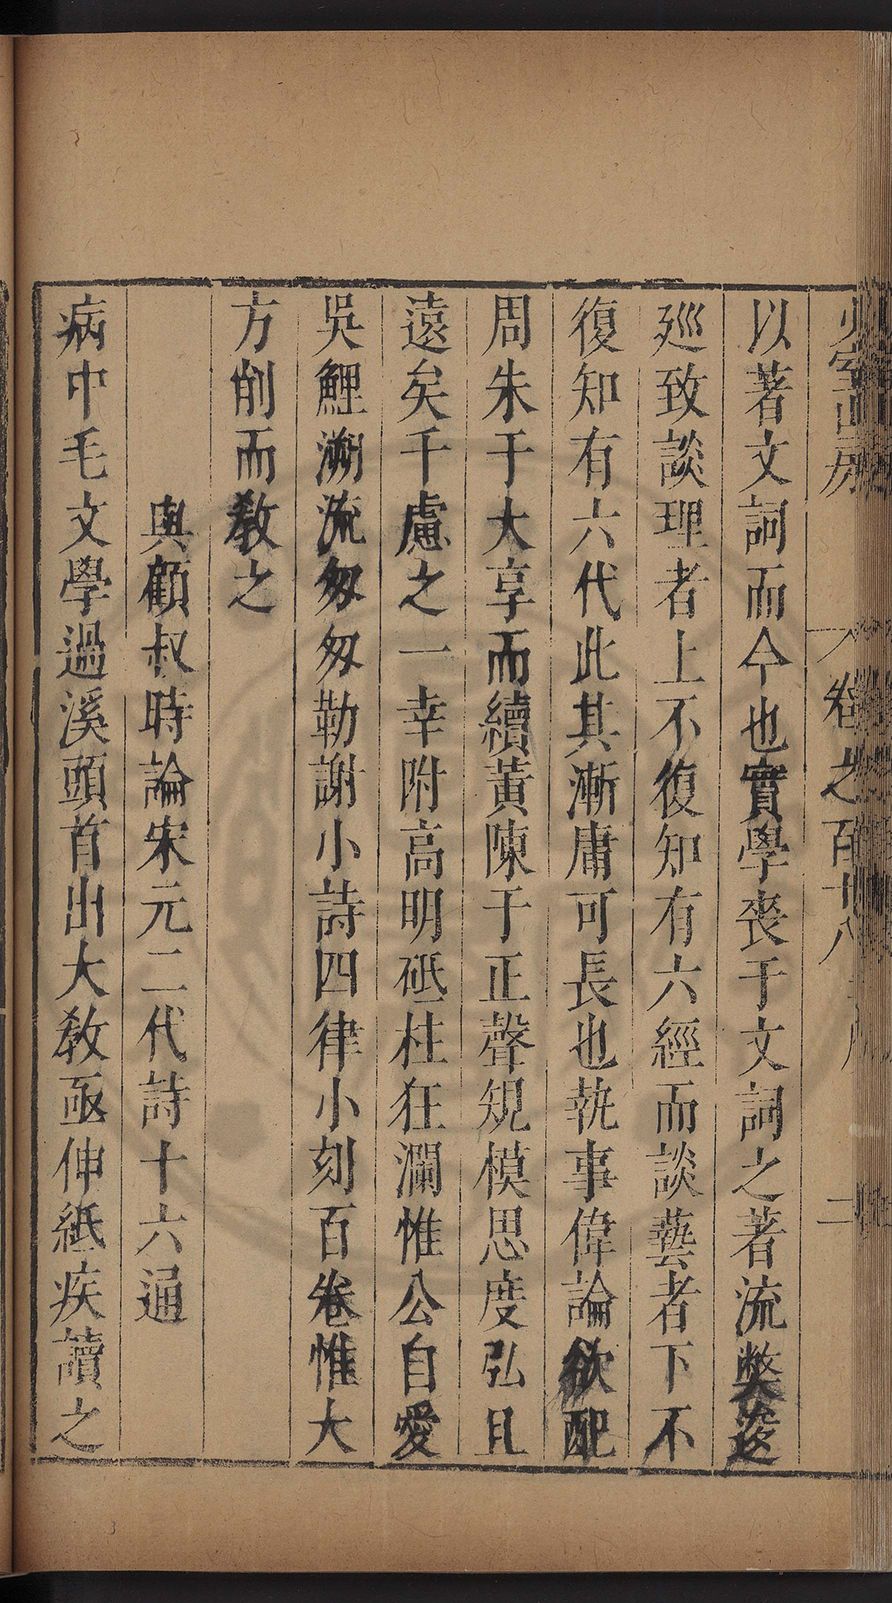 少室山房
卷之百十八
二
以著文詞而今也實學喪于文詞之著流獘逶
廵致談理者上不復知有六經而談藝者下不
復知有六代此其漸庸可長也執事偉論欲配
周朱于大享而續黃陳于正聲規模思度弘且
遠矣千慮之一幸附高明砥柱狂瀾惟公自愛
吳鯉溯流匆匆勒謝小詩四律小刻百卷惟大
方削而敎之
與顧叔時論宋元二代詩十六通
病中毛文學過溪頭首出大敎亟伸紙疾讀之